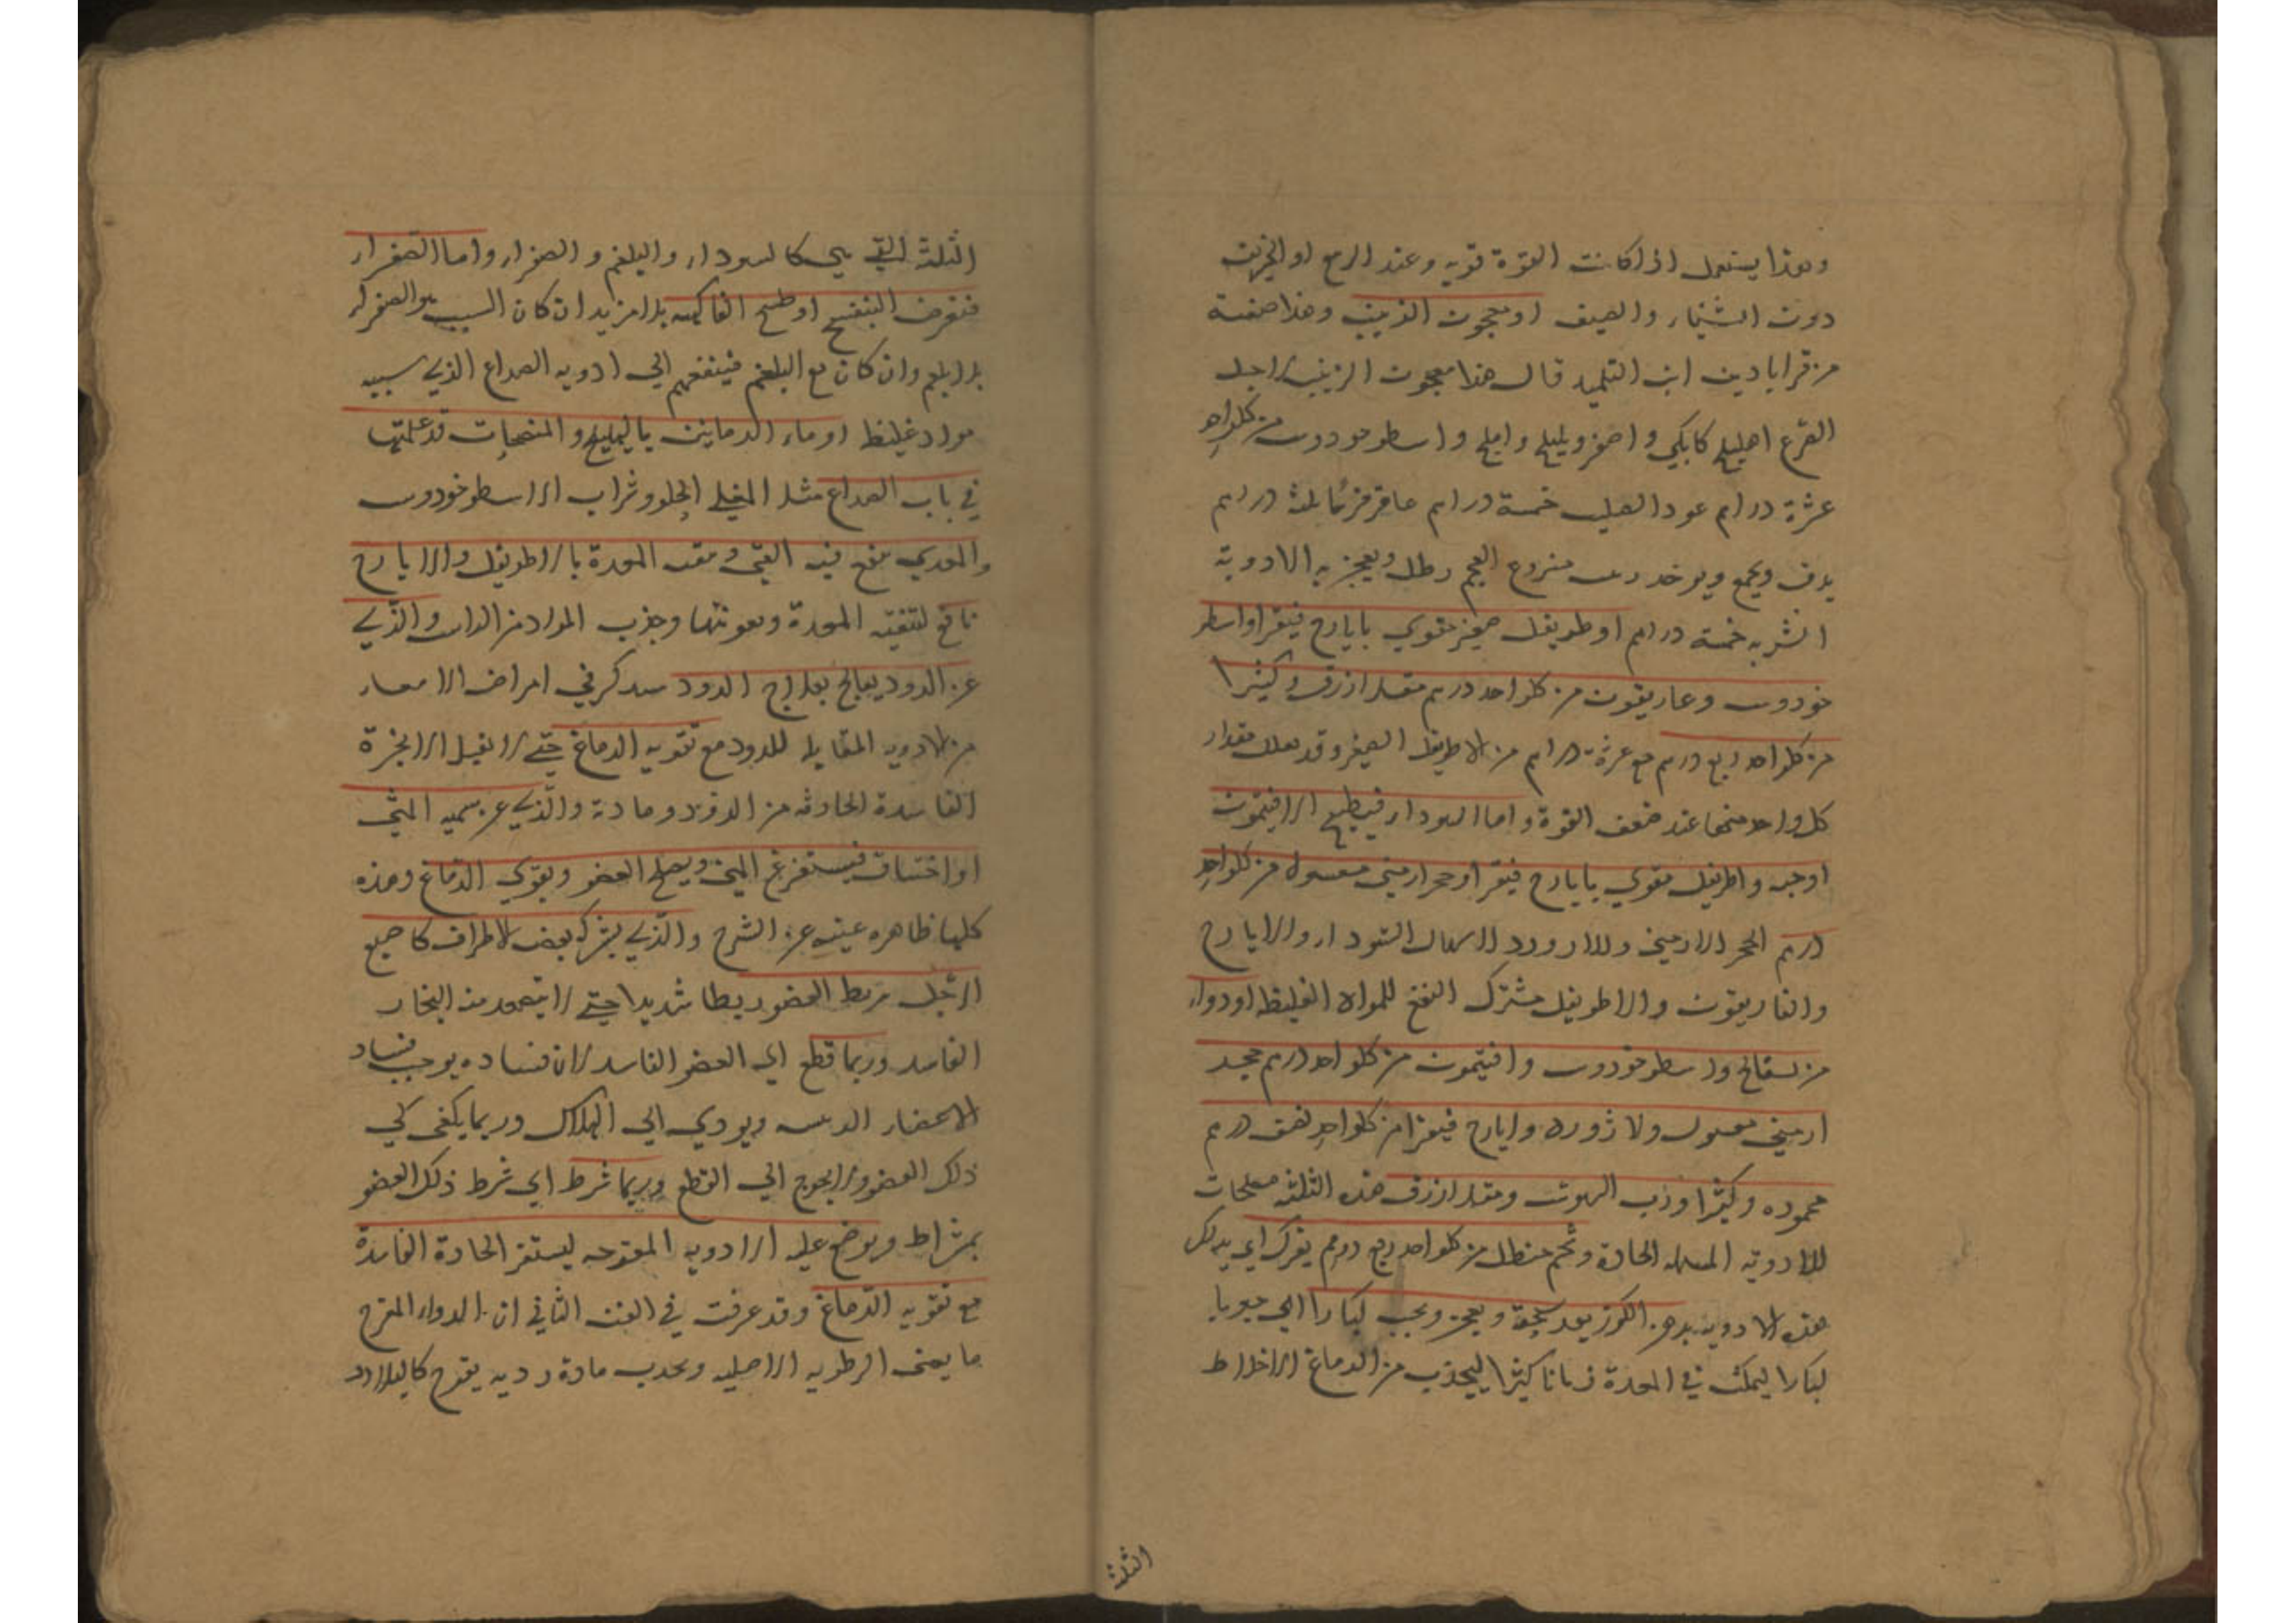 وهذا يستعمل اذا كانت القوة قويه وعند الربيع او الخريف
دون الشتاء والصيف او معجون الزبيب وهذا صفته
من قراباذين ابن التلميذ قال هذا معجون الزبيب لاجل
القرع اهليلج كابلي واصفر وبليلج واملج واسطوخودوس من كلواحد
عشرة دراهم عود الصليب خمسة دراهم عاقرقرحا ثلثة دراهم
يدق ويجمع ويوخذ زبيب منزوع العجم رطل ويعجن به الادوية
الشربه خمسة دراهم او اطريفل صغير مقوي بايارج فيقرا واسطو
خودوس وغاريقون من كلواحد درهم مقل ازرق وكثيرا
من كلواحد ربع درهم مع عشرة دراهم من الاطريفل الصغير وقد يقلل مقدار
كل واحد منها عند ضعف القوة واما السوداء فبطبيخ الافتيمون
او حبه واطريفل مقوي بايارج فيقرا وحجر ارمني مغسول من كلواحد
درهم الحجر الارمني واللازورد لاسهال السوداء والايارج
والغاريقون والاطريفل مشترك النفع للمواد الغليظه او دواء
من بسفايج واسطوخودوس وافتيمون من كلواحد درهم حجر
ارمني مغسول ولازورد وايارج فيقرا من كلواحد نصف درهم
محموده وكثيرا ورب السوس ومقل ازرق هذه الثلثه مصلحات
للادويه المسهله الحادة وشحم حنظل من كلواحد ربع درهم يفرك اي يدلك
هذه الادويه بدهن اللوز بعد سحقه ويعجن ويحبب كبارا اي حبوبا
كبارا ليمكث في المعدة زمانا كثيرا ليجذب من الدماغ الاخلاط
الثلثة
الثلثة التي هي كالسوداء والبلغم والصفراء واما الصفراء
فبقرص البنفسج او طبيخ الفاكهه بلا مزيد ان كان السبب هو الصفراء
بلا بلغم وان كان مع البلغم فينفعهم الي ادويه الصداع الذي سببه
مواد غليظ او ماء الرمانين بالهليلج والمنضجات قد علمتها
في باب الصداع مثل المغلي الحلو وشراب الاسطوخودوس
والمعدي ينفع فيه القي وتنقيه المعدة بالاطريفل والايارج
نافع لتنقيه المعدة وتقويتها وجذب المواد من الراس والذي
عن الدود يعالج بعلاج الدود سيذكر في امراض الامعاء
من الادويه المقابله للدود مع تقويه الدماغ حتي لا يقبل الابخرة
الفاسدة الحادثه من الدود ومادة والذي عن سميه المني
او اختناق فيستفرغ المني ويصلح العضو ويقوي الدماغ وهذه
كلها ظاهره غنيه عن الشرح والذي يشرك بعض الاطراف كاصبع
الرجل يربط العضو ربطا شديدا حتي لا يتصعد منه البخار
الفاسد وربما قطع اي العضو الفاسد لان فساده يوجب فساد
الاعضاء الرئيسه ويودي الي الهلاك وربما يكفي كي
ذلك العضو ولا يحوج الي القطع وربما شرط اي شرط ذلك العضو
بمشراط ويوضع عليه الادويه المقرحه ليستفرغ المادة الفاسدة
مع تقويه الدماغ وقد عرفت في الفن الثاني ان الدواء المقرح
ما يفني الرطوبه الاصليه ويجذب مادة رديه يقرح كالبلادر